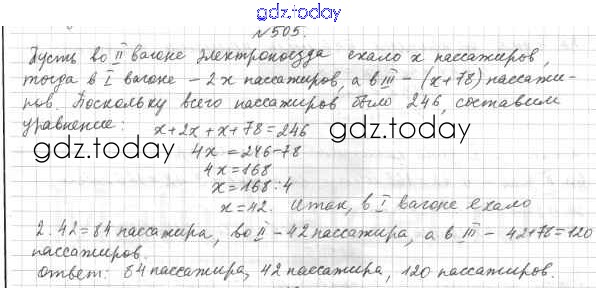 gdz.today
№505.
Пусть во II вагоне электропоезда ехало x пассажиров,
тогда в I вагоне – 2x пассажиров, а в III – (x+78) пассажи-
ров. Поскольку всего пассажиров было 246, составим
уравнение: x+2x+x+78=246
gdz.today
gdz.today
4x=246-78
4x=168
x=168:4
x=42. Итак, в I вагоне ехало
2·42=84 пассажира, во II – 42 пассажира, а в III – 42+78=120
пассажиров.
Ответ: 84 пассажира, 42 пассажира, 120 пассажиров.